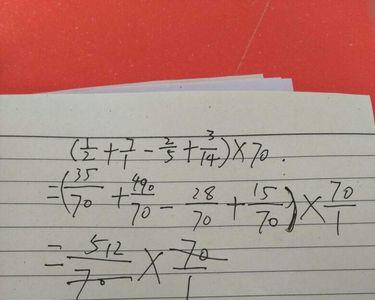 (1/2 + 7/1 - 2/5 + 3/14) × 70.
= (35/70 + 490/70 - 28/70 + 15/70) × 70/1
= 512/70 × 70/1